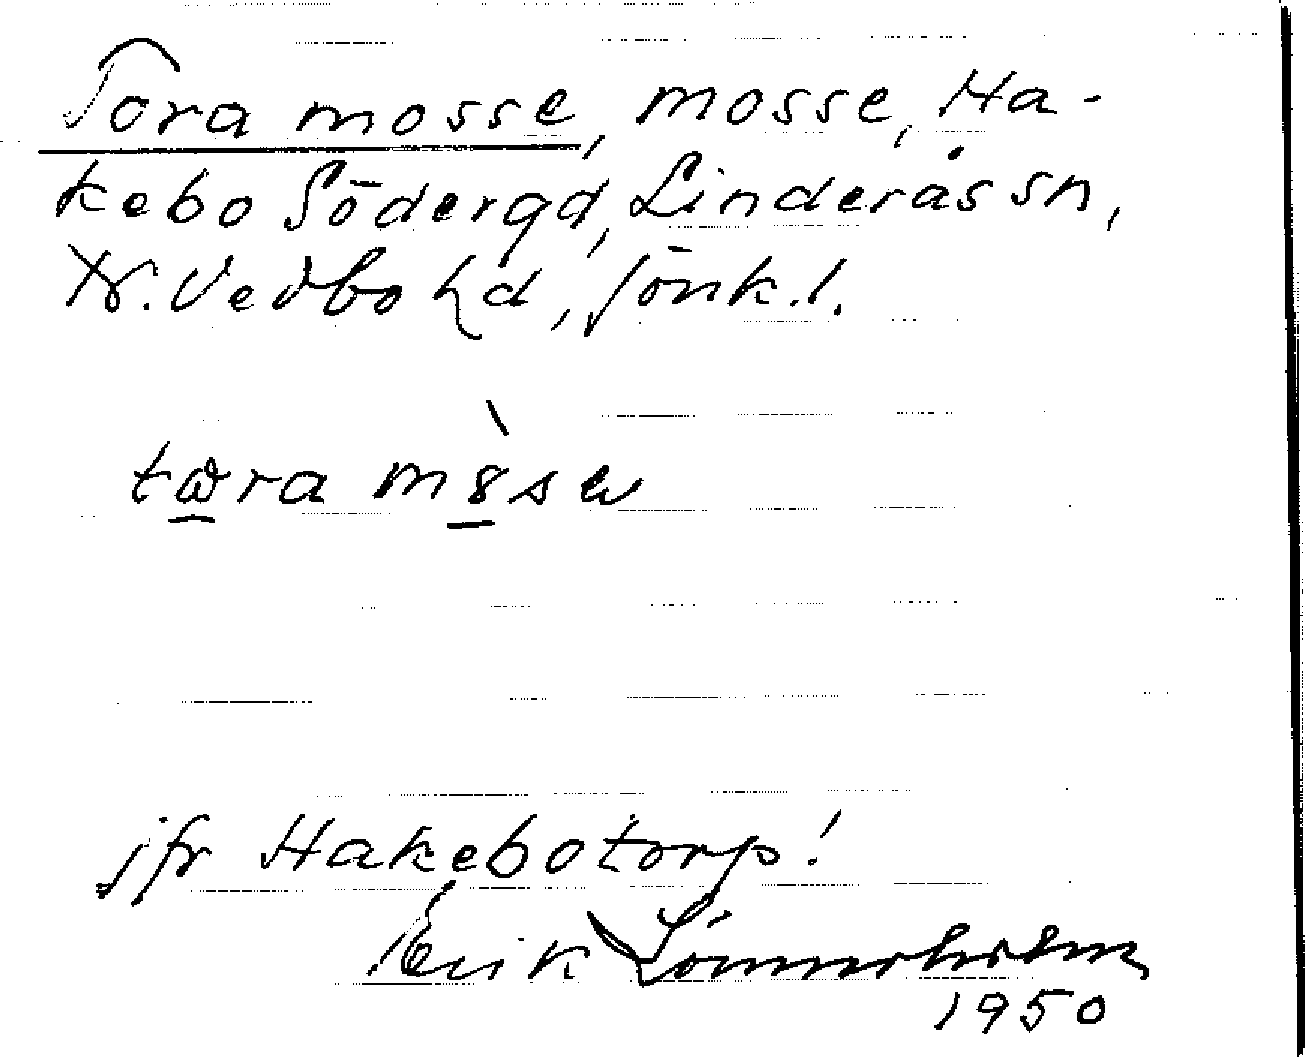 Tora mosse, mosse, Ha-
kebo Södergd, Linderås sn,
N. Vedbo hd, Jönk. l.
tɷra mꝏ̀sɐ
jfr Hakebotorp!
Erik
1950